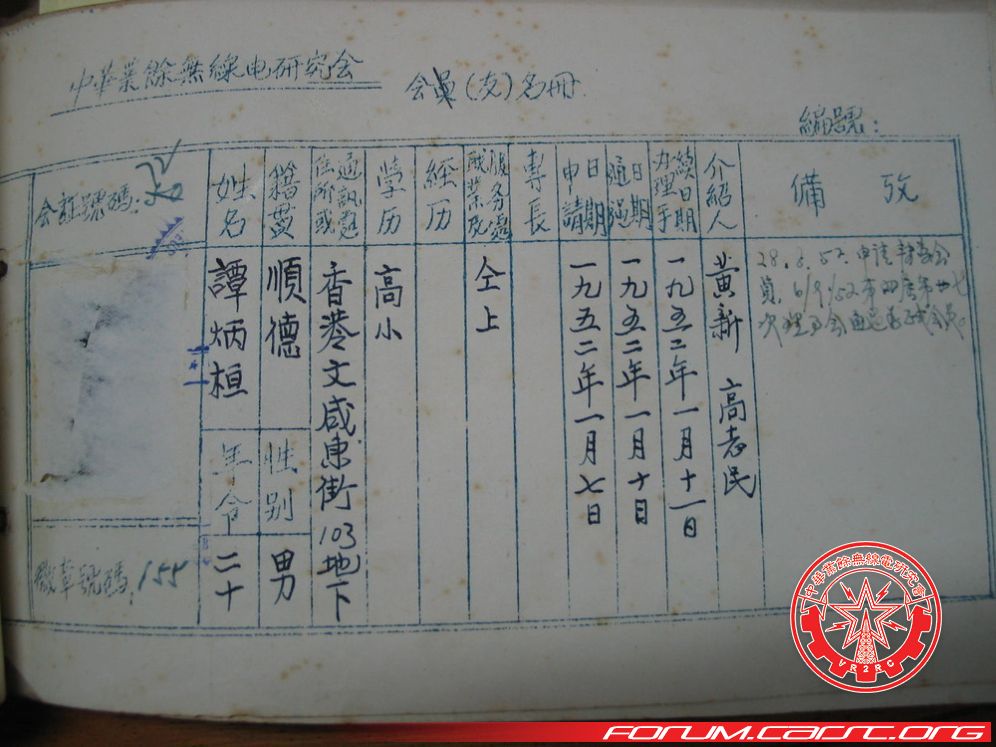 中華業餘無線电研究会
会員(友)名冊
編號:
備攷
28.8.52. 申請
6/9/52
介紹人
黃新 高志民
办理手續日期
一九五二年一月十一日
通過日期
一九五二年一月十日
申請日期
一九五二年一月七日
專長
服务處
职業及
仝上
经历
学历
高小
通訊處
住所或
香港文咸東街103地下
籍貫
順德
性别
男
姓名
譚炳桓
年令
二十
会証號碼:
徽章號碼: 155
中華業餘無線電研究會
VR2RC
FORUM.CARSC.ORG